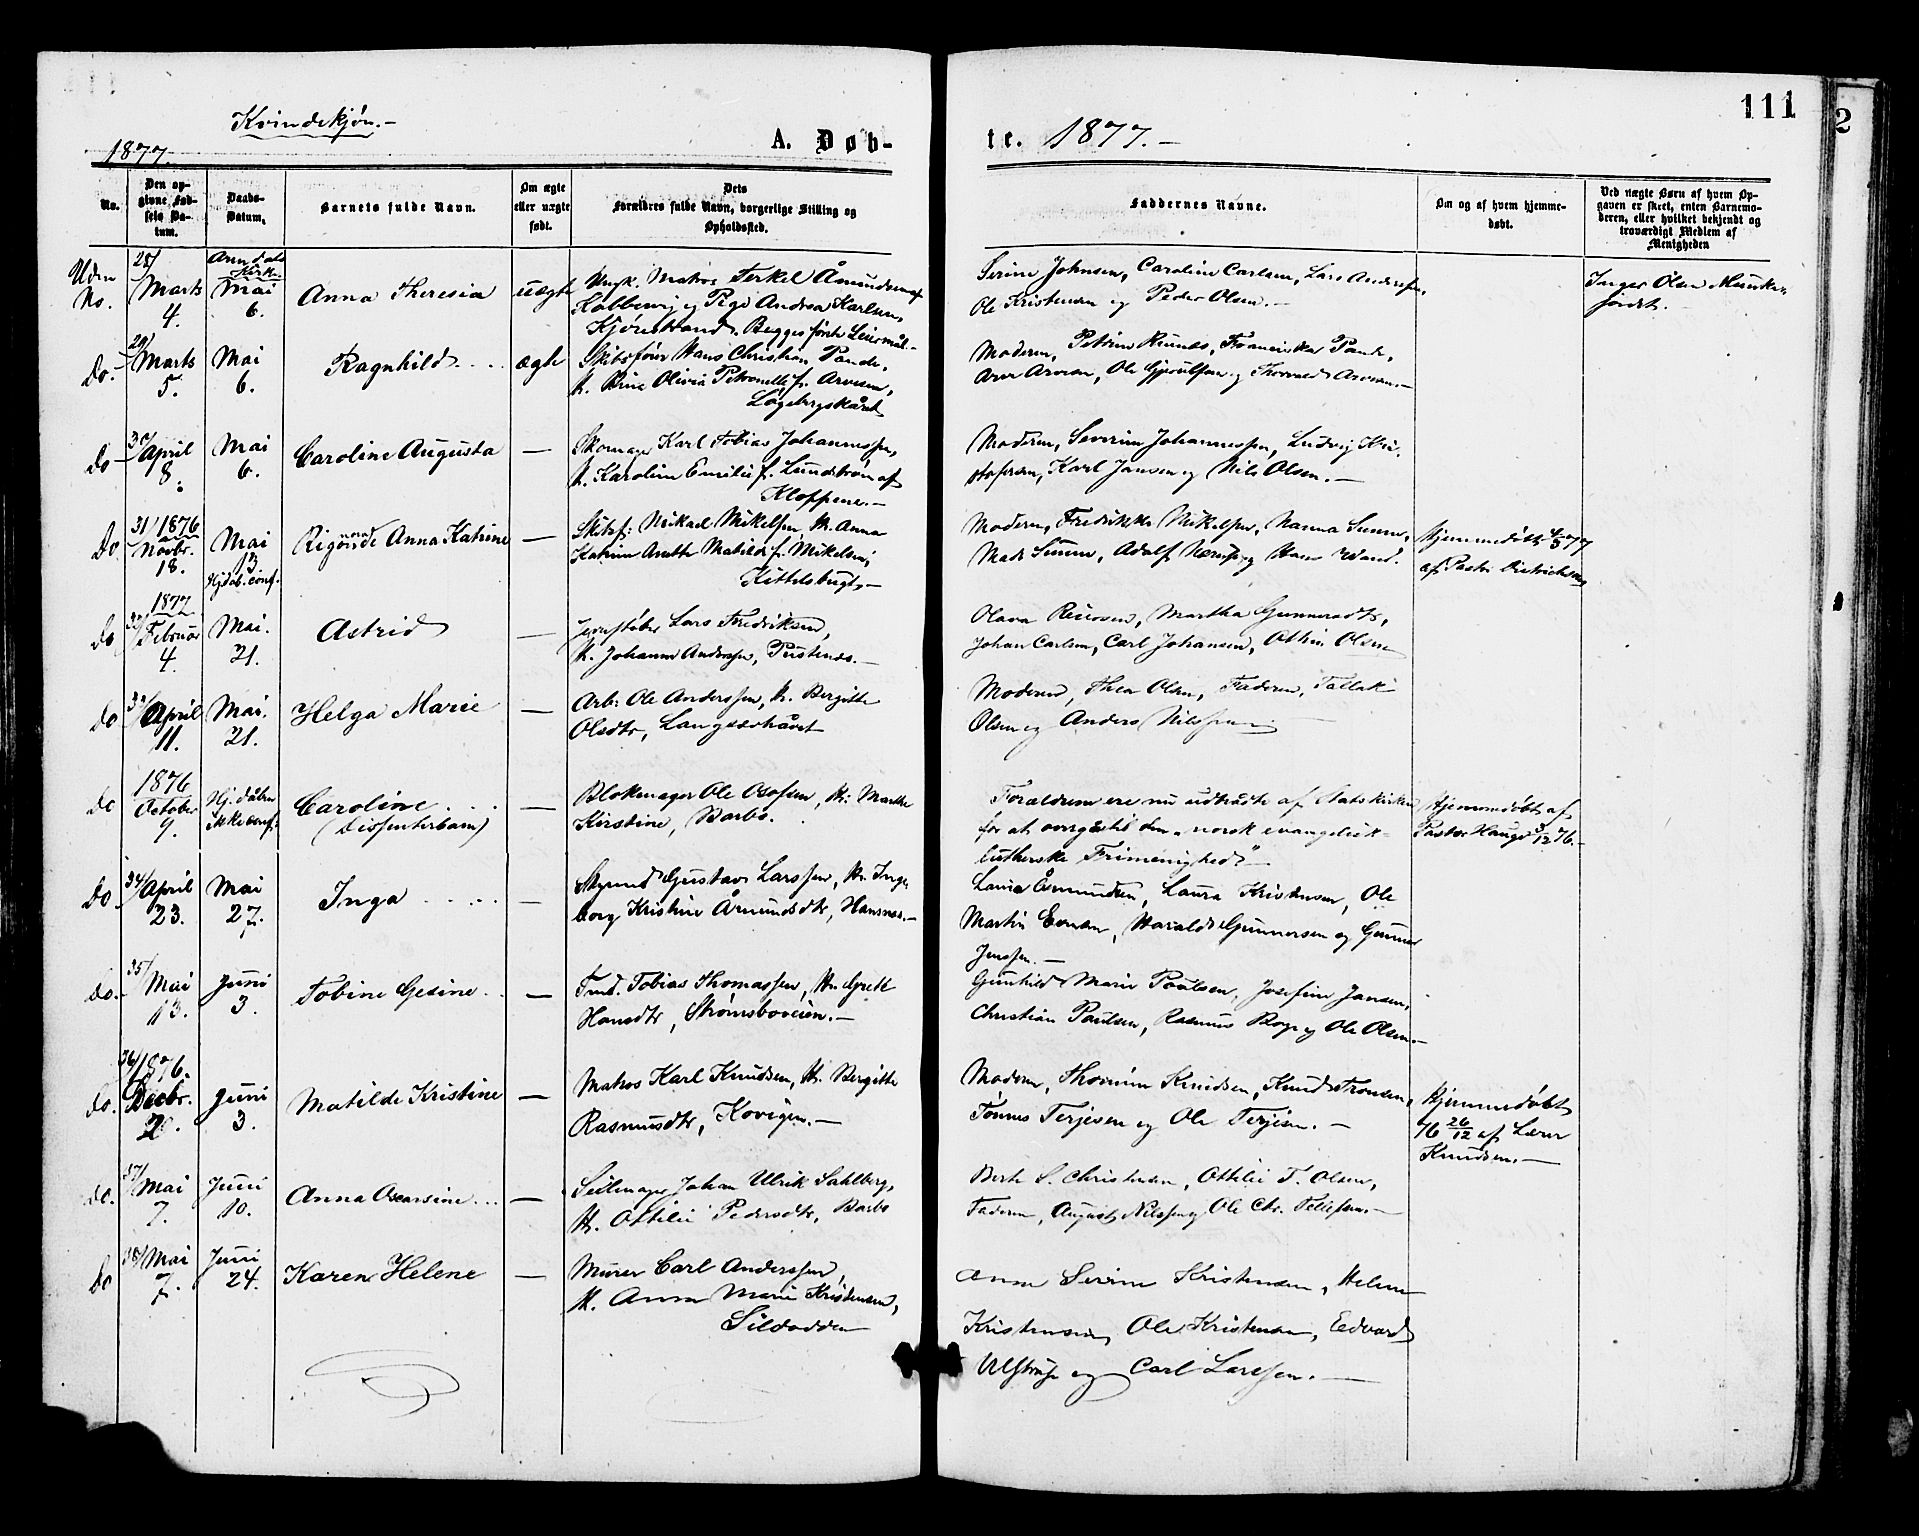 111
2
Kvindekjøn.-
1877.
A. Døb-
te. 1877.-
No.
Den op-
givne Fød-
sels Da-
tum.
Daabs-
Datum.
Barnets fulde Navn.
Om ægte
eller uægte
født.
Dets
Forældres fulde Navn, borgerlige Stilling og
Opholdssted.
Faddernes Navne.
Om og af hvem hjemme-
døbt.
Ved uægte Børn af hvem Op-
gaven er skeet, enten Barnemo-
deren, eller hvilket bekjendt og
troværdigt Medlem af
Menigheden
Uden
No.
28/
Marts
4.
Arendals
Kirke
Mai
6.
Anna Theresia
uægte
Ungk. Matros Terkel Åmundsen
Kolbervig og Pige Andrea Karlsen,
Kjørestrand. Begges første Leiermål-
Serine Johnsen, Caroline Carlsen, Lars Anderssen,
Ole Kristensen og Peder Olsen.-
Inger Olsen
Do.-
29/
Marts
5.
Mai
6.
Ragnhild....
ægte
Skibsfører Hans Christian
H. Olivia Petronelle f. Arvesen,
Moderen, Petrine
Arvesen, Ole og Thorvald Arvesen.-
Do-
30/
April
8.
Mai
6.
Caroline Augusta
—
Skomager Karl Tobias Johannessen,
H. Karoline Emilie f. Lundstrøm af
Kloppene.-
Moderen, Severine Johannessen, Ludvig Kri-
stofersen, Karl Jansen og Nils Olsen.-
Do
31/ 1876
Novbr.
18.
Mai
13
Hjdøb. conf.
Anna Katrine
—
Skibsf: Mikael Mikelsen, H. Anna
Katrine Matilde f. Mikelsen,
Kittelsbugt,-
Moderen, Fredrikke Mikelsen, Hanna
Mads Adolf og Hans
Hjemmedøbt
af Pastor Dietrichson
Do
1877
32/
Februar
4.
Mai.
21.
Astrid
—
Jernstøber Lars Fredriksen,
H. Johanne Anderssen,
Olava Martha Gunnersdtr,
Johan Carlsen, Carl Johansen, Othin Olsen
Do
33/
April
11.
Mai.
21.
Helga Marie
—
Arb: Ole Anderssen, H. Bergitte
Olsdtr,
Moderen, Thea Olsen, Faderen, Tallak
Olsen og Anders Nilssen
Do
1876
October
9.
Hj. døbt
Ikke conf.
Caroline....
(Dissenterbarn)
—
Blokmager Ole H. Marthe
Kirstine, Barbo.
Forældrene ere nu udtrådte af Statskirken
for at overgå til den „norsk evangelisk-
lutherske Frimenighed”-
Hjemmedøbt af
Pastor Hauge 3/12 76.-
Do
34/
April
23.
Mai
27.
Inga.....
—
Styrmd Gustav Larssen, H. Inge-
borg Kristine Åmundsdtr,
Åsmundsen, Laura Kristensen, Ole
Martin Harald Gunnersen og Gunner
Jenssen.-
Do.-
35/
Mai
13.
Juni
3.
Tobine Gesine..
—
Tmd. Tobias Thomassen, H. Grete
Hansdtr, Strømsboveien.-
Gunhild Marie Poulsen, Josefine Jansen,
Christian Paulsen, Rasmus og Ole Olsen.-
Do.
36/ 1876.
Decbr.
20.
Juni
3.
Matilde Kristine
—
Matros Karl Knudsen, H. Bergitte
Rasmusdtr, Kovigen.-
Moderen, Knudsen, Knud
Tønnes Terjesen og Ole Terjesen.-
Hjemmedøbt
76 26/12 af Lærer
Knudsen.-
Do.
37/
Mai
7.
Juni
10.
Anna Oscarsine...
—
Seilmager Johan Ulrik Sahlberg,
H. Ottilie Pedersdtr, Barbo
S. Christensen, Ottilie T. Olsen,
Faderen, August Nilssen og Ole Chr. Tellefsen.-
Do
38/
Mai
7.
Juni
24.
Karen Helene
—
Murer Carl Anderssen,
H. Anna Marie Kristensen,
Sildodden
Anna Serine Kristensen, Helene
Kristensen, Ole Kristensen, Edvard
Ulstrup og Carl Larssen.-